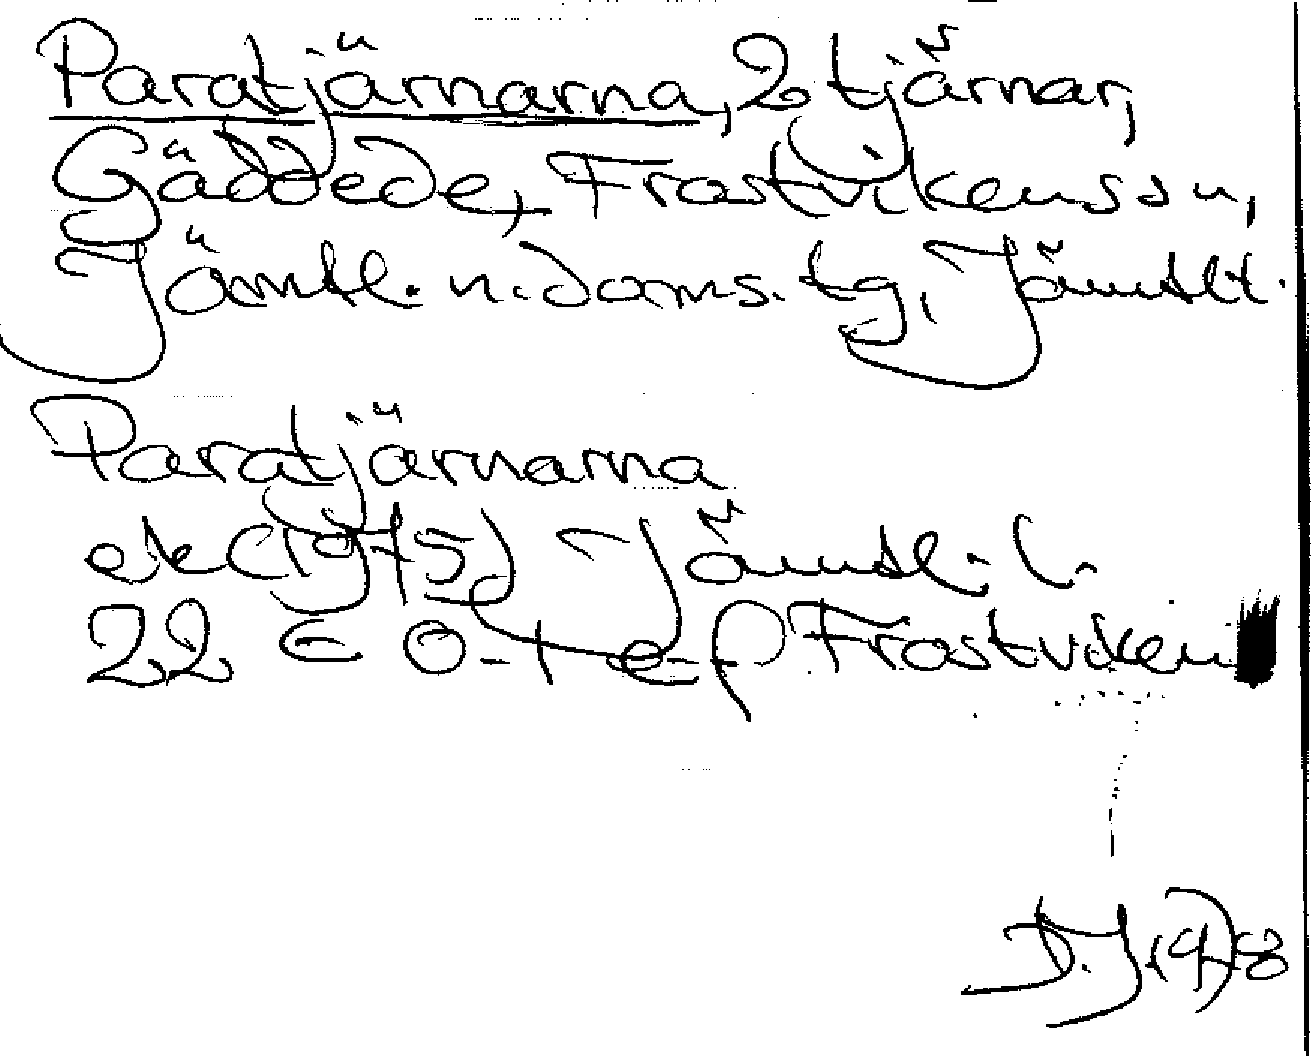 Paratjärnarna, 2 tjärnar,
Gäddede, Frostvikens sn,
Jämtl. n. doms. tg, Jämtl l.
Paratjärnarna
ek (1975) Jämtl. l.
22 E 0-1 e-f Frostviken
D.J 1978